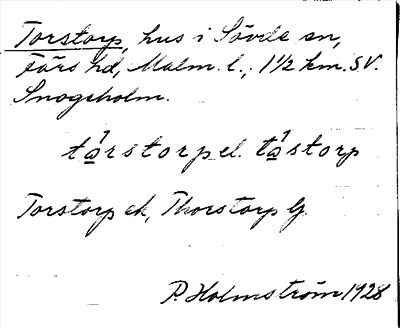 Torstorp, hus i Sövde sn,
Färs hd, Malm. l., 1 1/2 km. S.V.
Snogeholm.
tårstorp el. tåstorp
Torstorp ek, Thorstorp G.
P. Holmström 1928